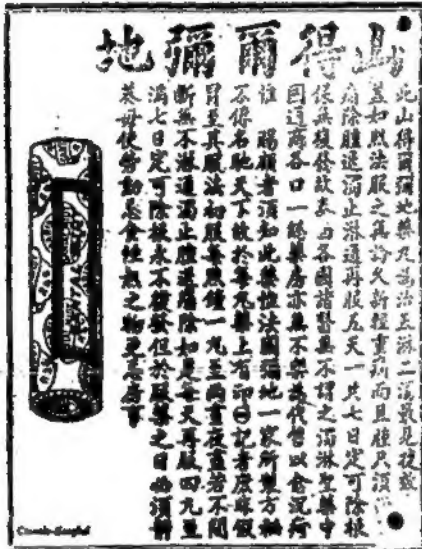 山得爾彌地
此山得爾彌地藥丸為治五淋一濁最見
如照法服之無論久新輕重而且腫只須
痛除腫退濁止淋通再服五天一共七日定可除根
保無復發故泰西各國諸醫無不謂之濁淋聖藥中
國通商各口一經藥房亦無不樂為代售以會
惟 賜顧者須知此藥惟法國彌地一家所製方
名馳天下故於每丸藥上有印記者庶
冒至其服法初服每點鐘一丸至兩晝夜若不間
斷無不淋通濁止腫退痛除如是每天再服四丸至
滿七日定可除根永不復發但於服藥之日必須靜
養毋使勞動忌食辣熱之物更忌房事